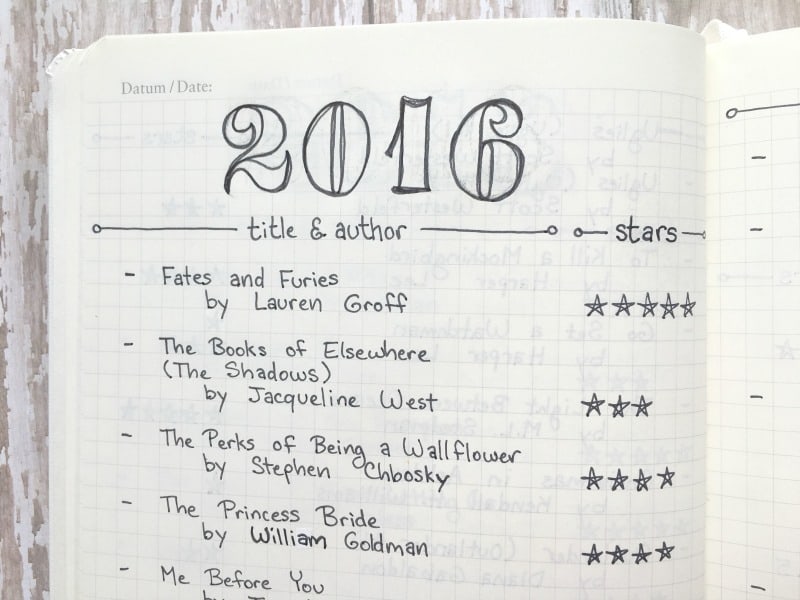 Datum / Date:
2016
title & author stars
- Fates and Furies
by Lauren Groff ☆☆☆☆☆
- The Books of Elsewhere
(The Shadows)
by Jacqueline West ☆☆☆
- The Perks of Being a Wallflower
by Stephen Chbosky ☆☆☆☆
- The Princess Bride
by William Goldman ☆☆☆☆
- Me Before You
by